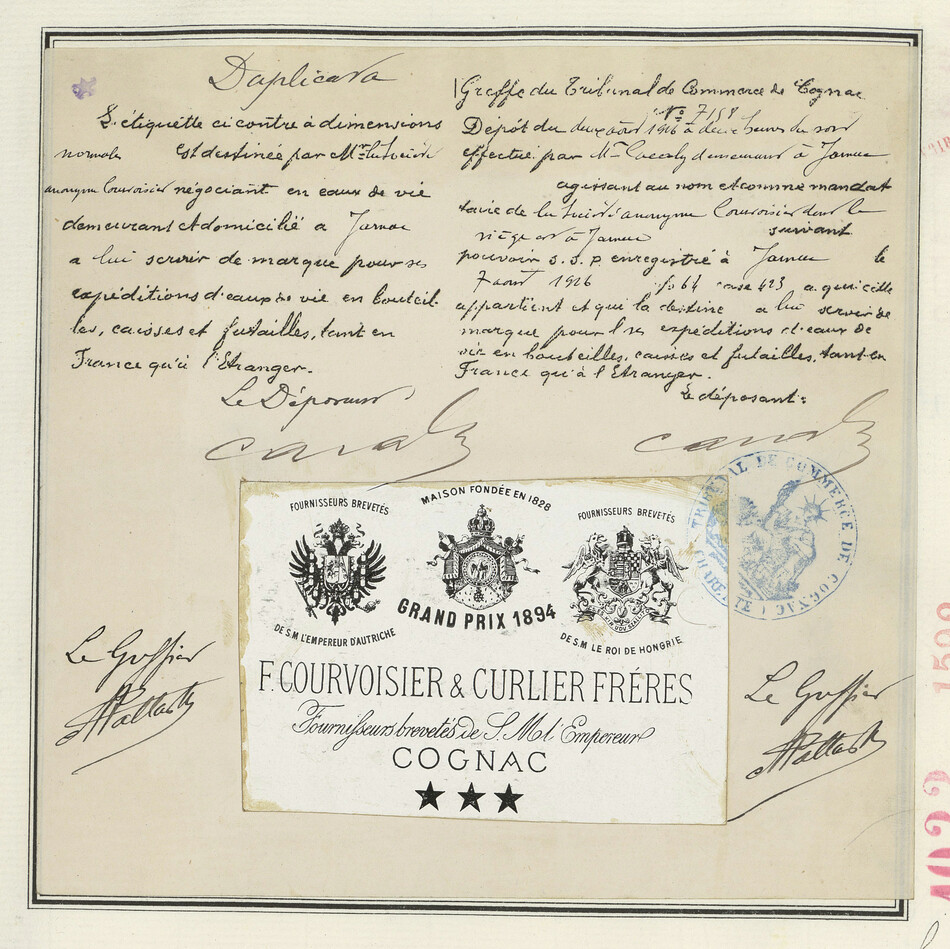 Duplicata
L'étiquette ci contre à dimensions
normales Est destinée par Mr la Société
anonyme Courvoisier négociant en eaux de vie
demeurant et domicilié a Jarnac
a lui servir de marque pour ses
expéditions d'eaux de vie en bouteil-
les, caisses et futailles, tant en
France qu'à l'Etranger.
Le Déposant
Greffe du Tribunal de Commerce de Cognac
No 7158
Dépôt du août 1916 à deux heures du soir
effectué par Mr demeurant à Jarnac
agissant au nom et comme mandat
taire de la Société anonyme Courvoisier dont le
siège est à Jarnac suivant
pouvoir s.s.p. enregistré à Jarnac le
7 aout 1916 fo 64 case 423 a qui elle
appartient et qui la destine a lui servir de
marque pour l ses expéditions d'eaux de
vie en bouteilles, caisses et futailles, tant en
France qu'à l'Etranger.
Le déposant:
TRIBUNAL DE COMMERCE DE COGNAC (CHARENTE)
FOURNISSEURS BREVETÉS
DE S.M L'EMPEREUR D'AUTRICHE
MAISON FONDÉE EN 1828
GRAND PRIX 1894
FOURNISSEURS BREVETÉS
DE S.M LE ROI DE HONGRIE
F. COURVOISIER & CURLIER FRÉRES
Fournisseurs brevetés de S. M. l'Empereur
COGNAC
Le Greffier
Le Greffier